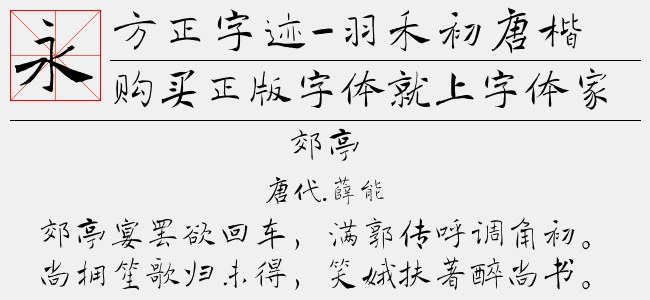 永
方正字迹-羽禾初唐楷
购买正版字体就上字体家
郊亭
唐代.薛能
郊亭宴罢欲回车，满郭传呼调角初。
尚拥笙歌归未得，笑娥扶著醉尚书。